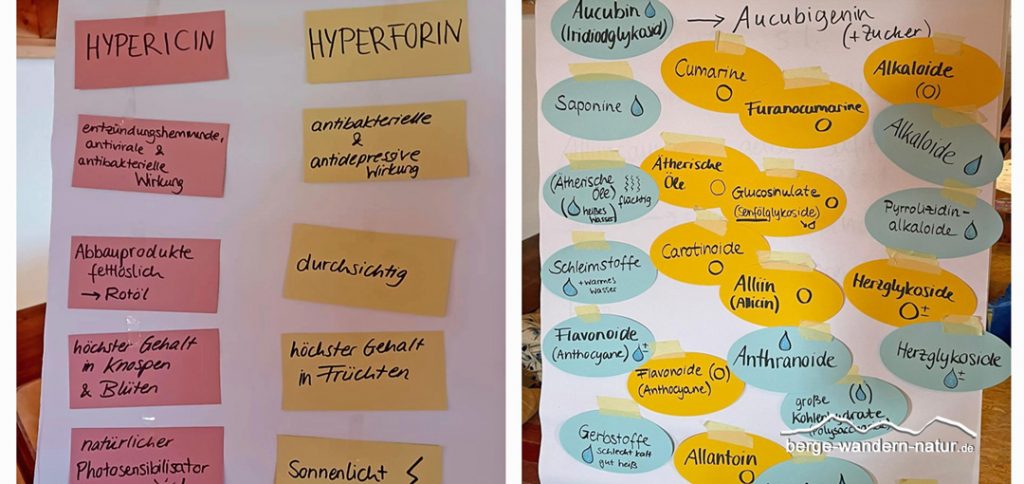 HYPERICIN
entzündungshemmende,
antivirale &
antibakterielle
Wirkung
Abbauprodukte
fettlöslich
→ Rotöl
höchster Gehalt
in Knospen
& Blüten
natürlicher
Photosensibilisator
HYPERFORIN
antibakterielle
&
antidepressive
Wirkung
durchsichtig
höchster Gehalt
in Früchten
Sonnenlicht
Aucubin
(Iridoidglykosid)
→ Aucubigenin
(+ Zucker)
Cumarine
Alkaloide
Saponine
Furanocumarine
Alkaloide
Ätherische
Öle
(Ätherische
Öle)
flüchtig
heißes
Wasser
Glucosinulate
(Senfölglykoside)
Pyrrolizidin-
alkaloide
Carotinoide
Schleimstoffe
+ warmes
Wasser
Alliin
(Allicin)
Herzglykoside
±
Flavonoide
(Anthocyane) ±
Anthranoide
Herzglykoside
±
Flavonoide
(Anthocyane)
große
Kohlenhydrate
Gerbstoffe
schlecht kalt
gut heiß
Allantoin
berge-wandern-natur.de